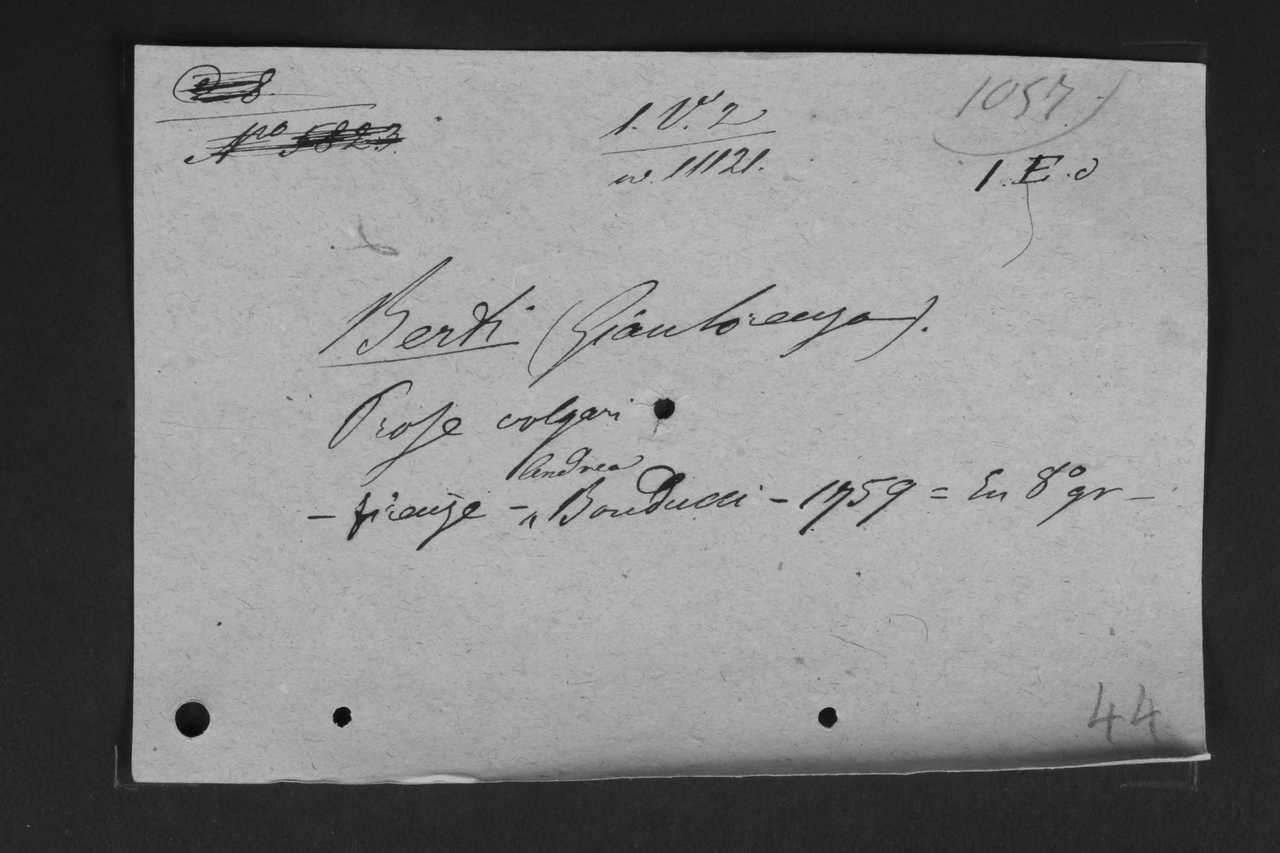 Nro 5823
1. V. 2
no. 11121.
1057
1. E. 0
Berti (Gianlorenzo).
Prose volgari
Andrea
- Firenze - Bonducci - 1759 = In 8º gr -
44